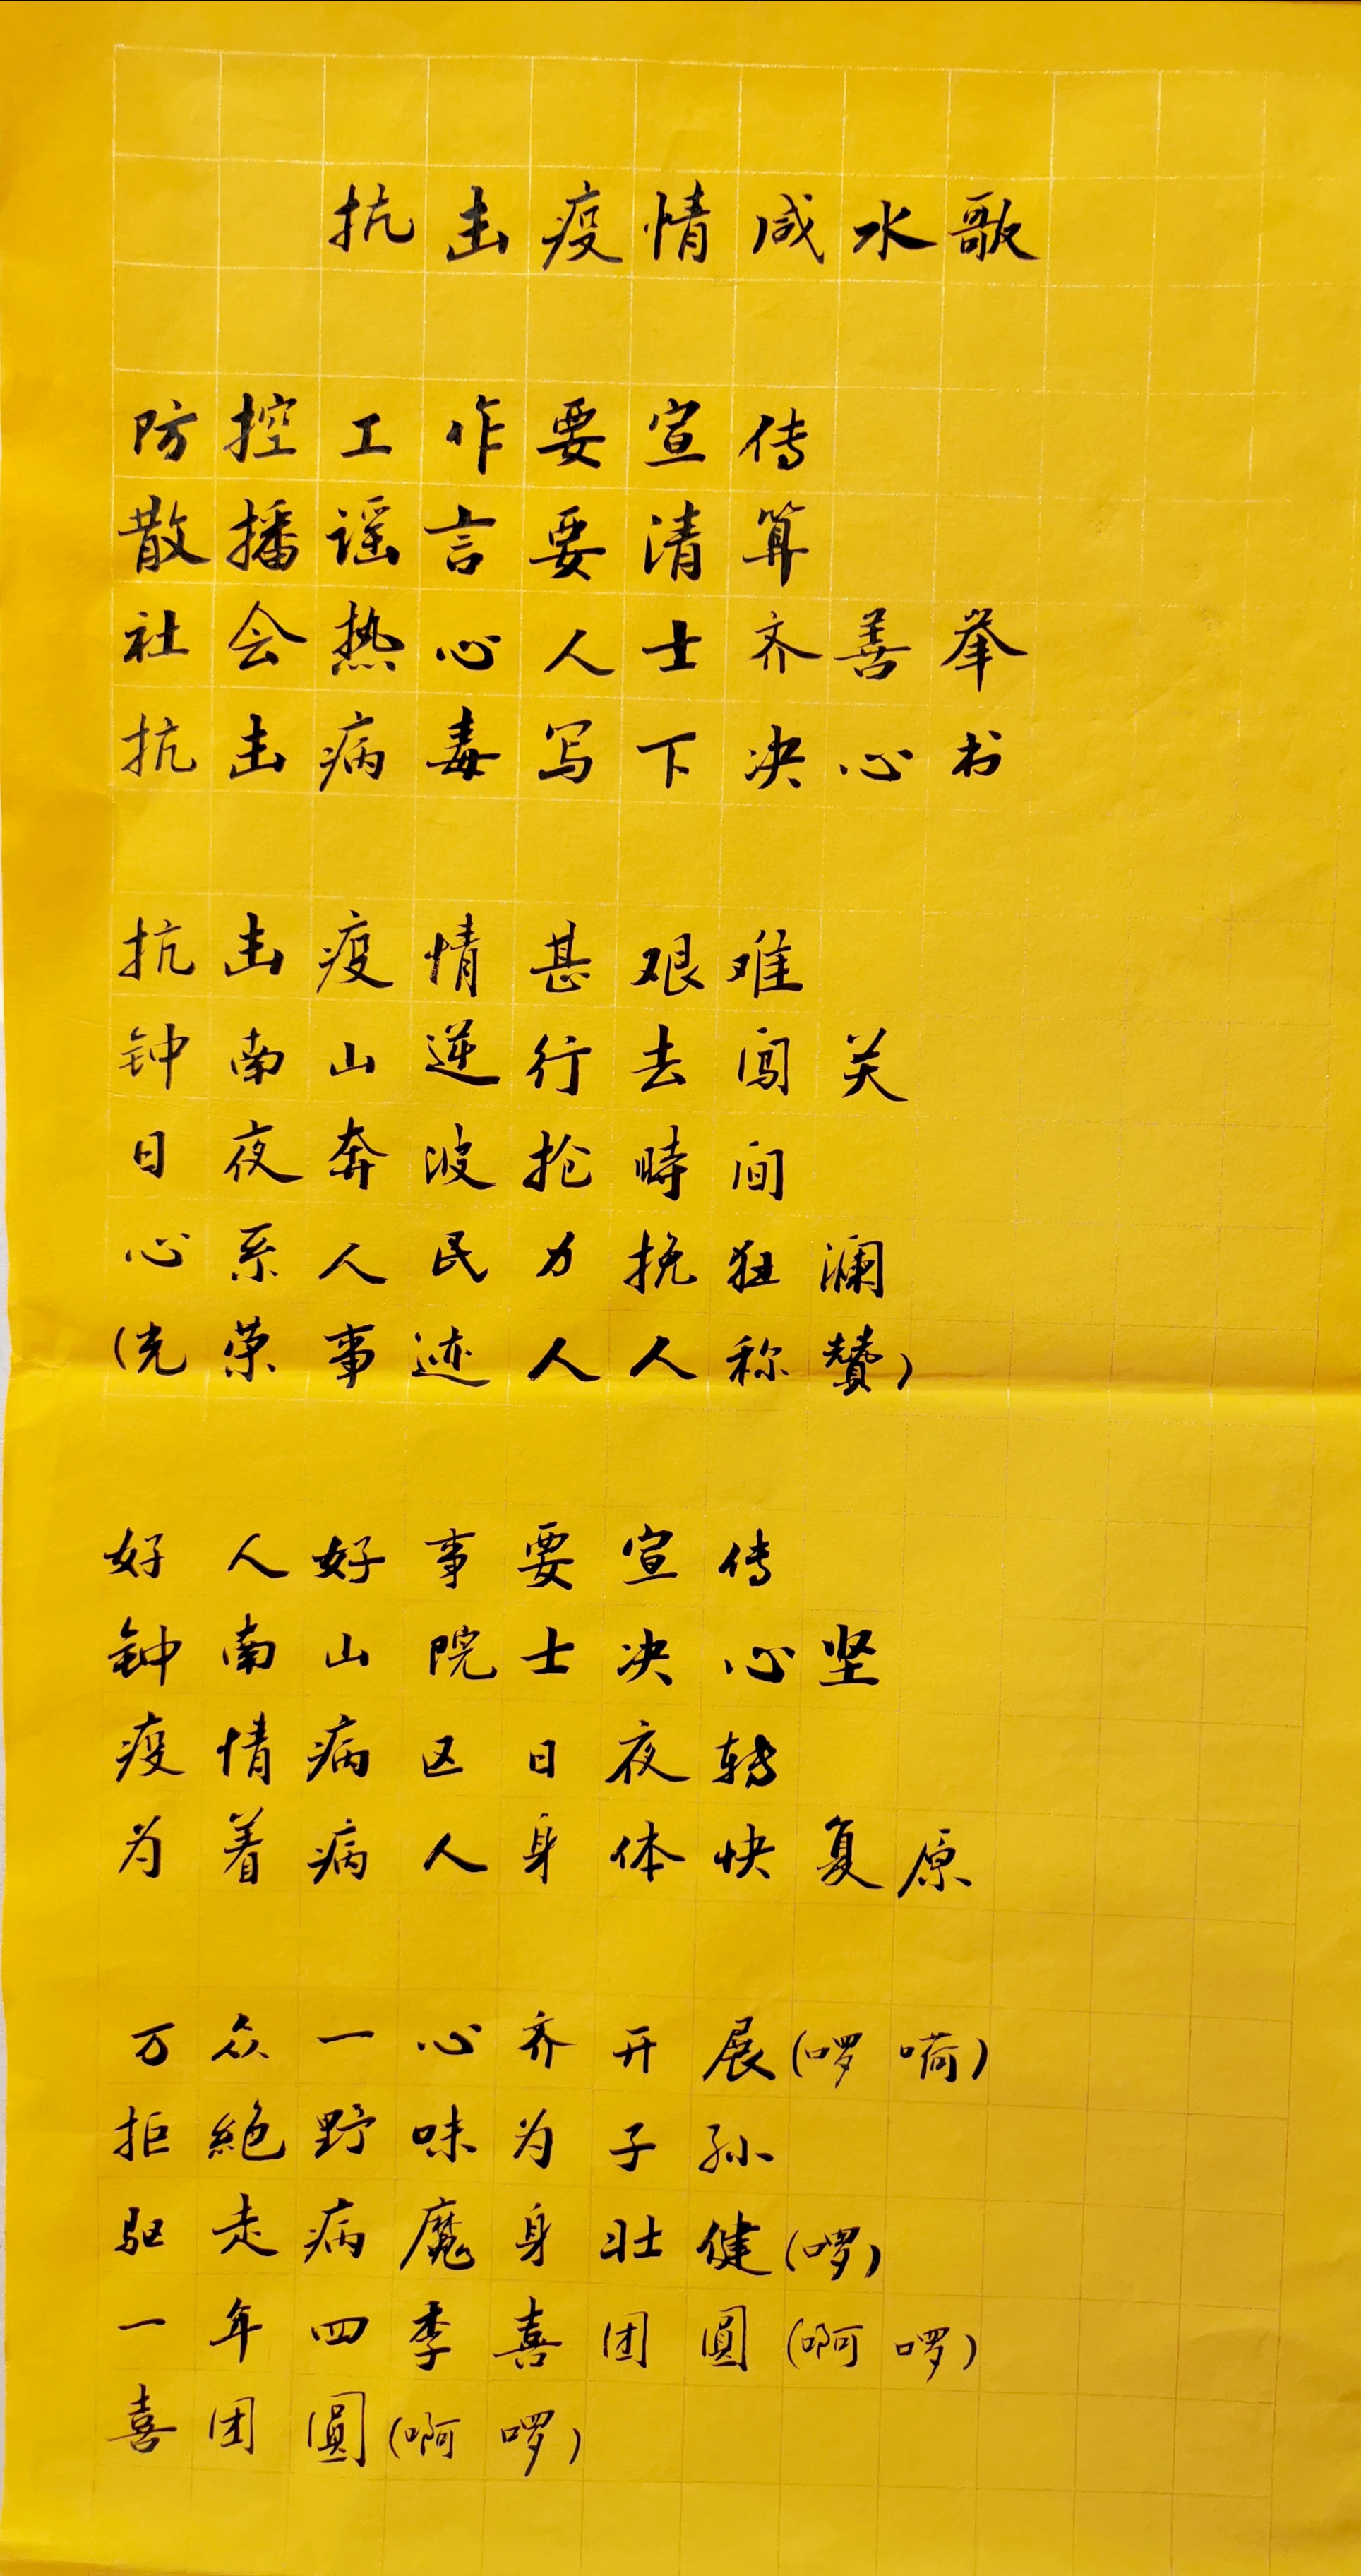 抗击疫情咸水歌
防控工作要宣传
散播谣言要清算
社会热心人士齐善举
抗击病毒写下决心书
抗击疫情甚艰难
钟南山逆行去闯关
日夜奔波抢時间
心系人民力挽狂澜
(光荣事迹人人称赞)
好人好事要宣传
钟南山院士决心坚
疫情病区日夜转
为着病人身体快复原
万众一心齐开展(啰嗬)
拒絕野味为子孙
驱走病魔身壮健(啰)
一年四季喜团圓(啊啰)
喜团圓(啊啰)